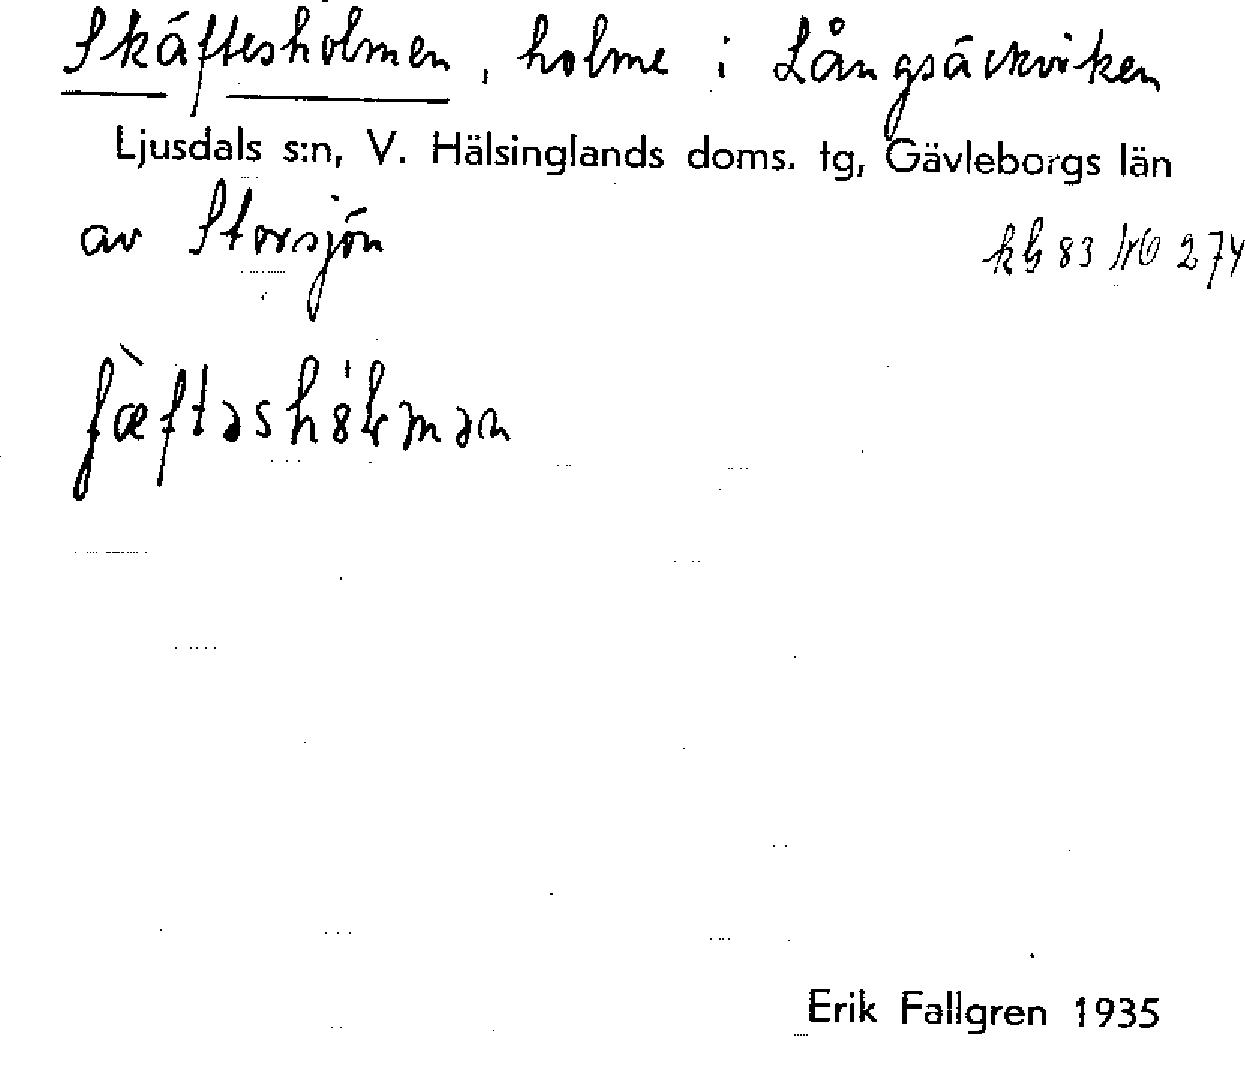 Skäftesholmen, holme i Långsäckviken
Ljusdals s:n, V. Hälsinglands doms. tg, Gävleborgs län
av Storsjön
kb 83 274
Erik Fallgren 1935